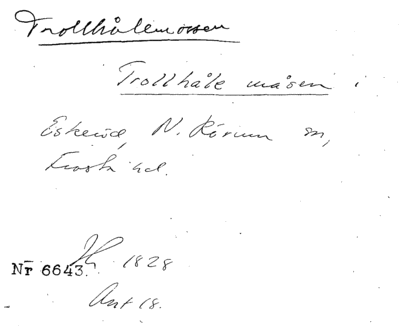 Trollhålemossen
Trollhåle måsen i
Eskeröd, N. Rörum sn,
Frosta hd.
Nr 6643. 1828
Ant 18.